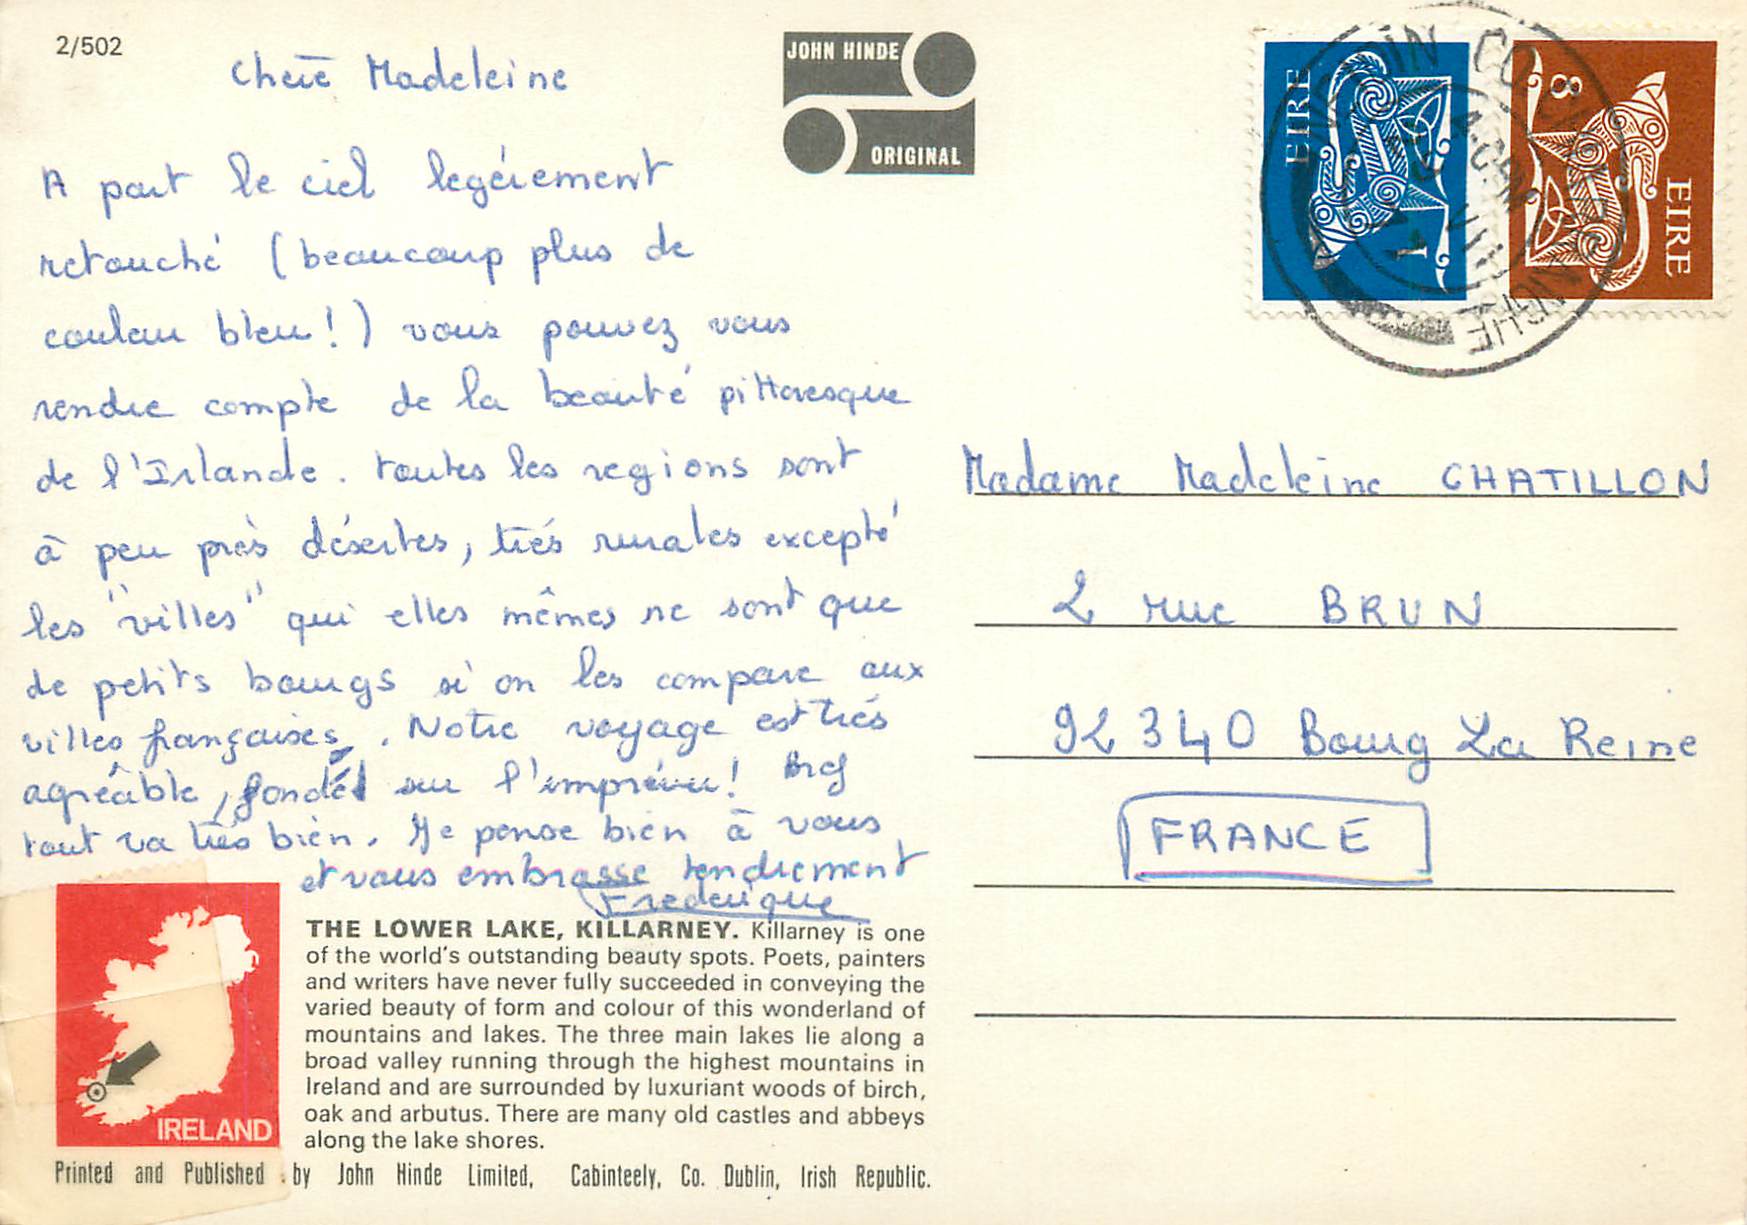 2/502
Chère Madeleine
A part le ciel legérement
retouché (beaucoup plus de
couleur bleu!) vous pouvez vous
rendre compte de la beauté pittoresque
de l'Irlande. toutes les regions sont
à peu près désertes, trés rurales excepté
les "villes" qui elles mêmes ne sont que
de petits bourgs si on les compare aux
villes françaises. Notre voyage est trés
agréable, fondé sur l'imprévu! Bref
tout va très bien. Je pense bien à vous
et vous embrasse tendrement
Frederique
JOHN HINDE
ORIGINAL
EIRE 1
EIRE 8
Madame Madeleine CHATILLON
2 rue BRUN
92340 Bourg La Reine
FRANCE
THE LOWER LAKE, KILLARNEY. Killarney is one
of the world's outstanding beauty spots. Poets, painters
and writers have never fully succeeded in conveying the
varied beauty of form and colour of this wonderland of
mountains and lakes. The three main lakes lie along a
broad valley running through the highest mountains in
Ireland and are surrounded by luxuriant woods of birch,
oak and arbutus. There are many old castles and abbeys
along the lake shores.
IRELAND
Printed and Published by John Hinde Limited, Cabinteely, Co. Dublin, Irish Republic.